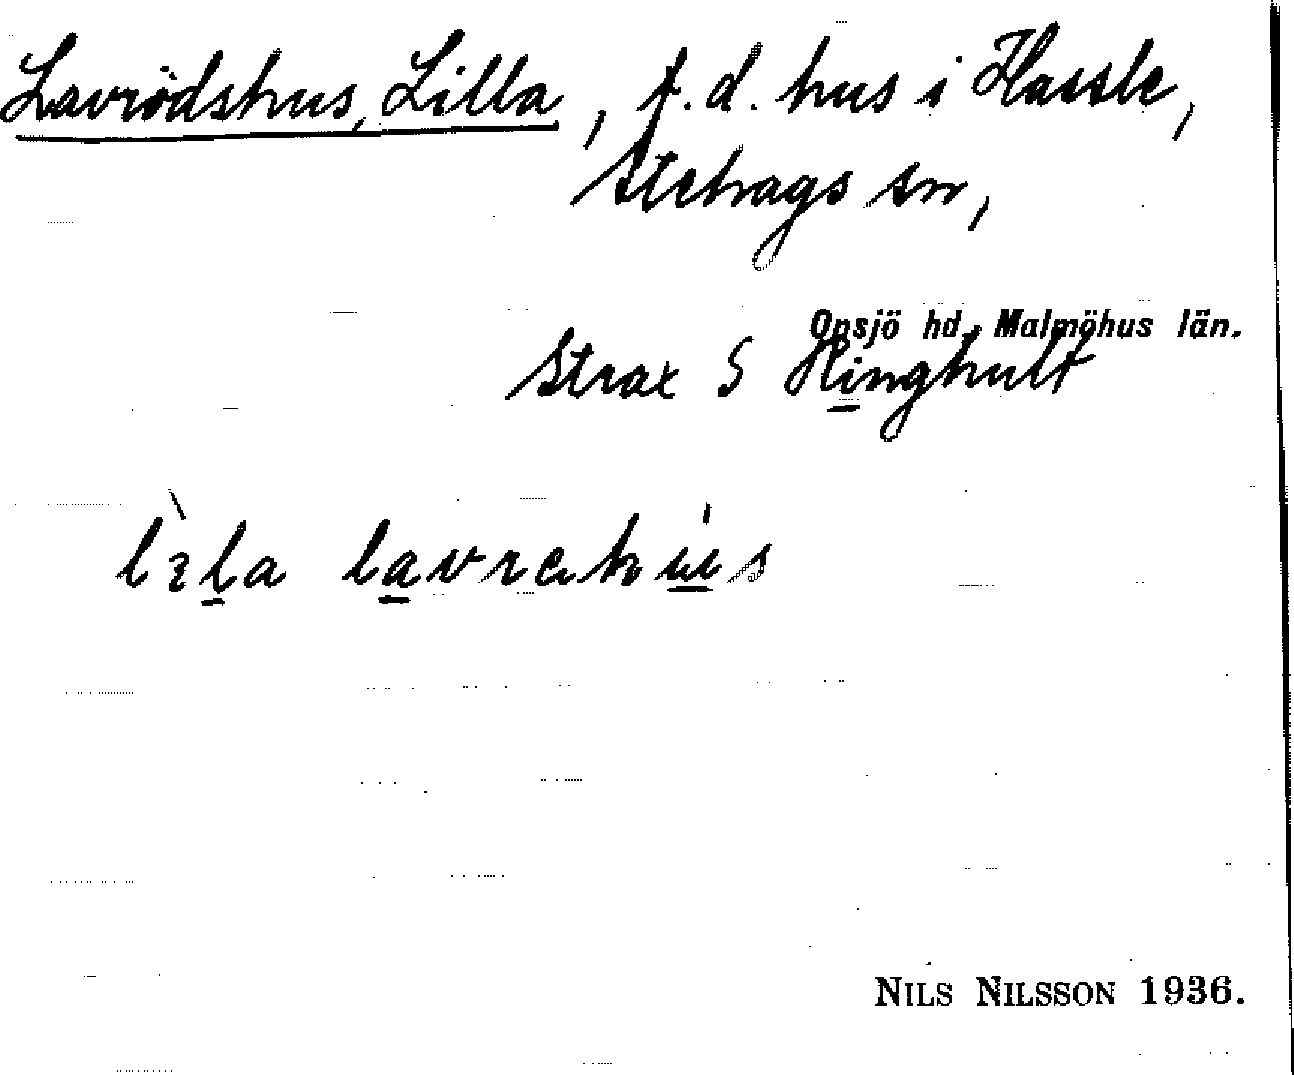 Lavrödshus, Lilla, f.d. hus i Hassle,
Stehags sn,
Onsjö hd, Malmöhus län.
Strax S Hinghult
lìla lavrehús
NILS NILSSON 1936.